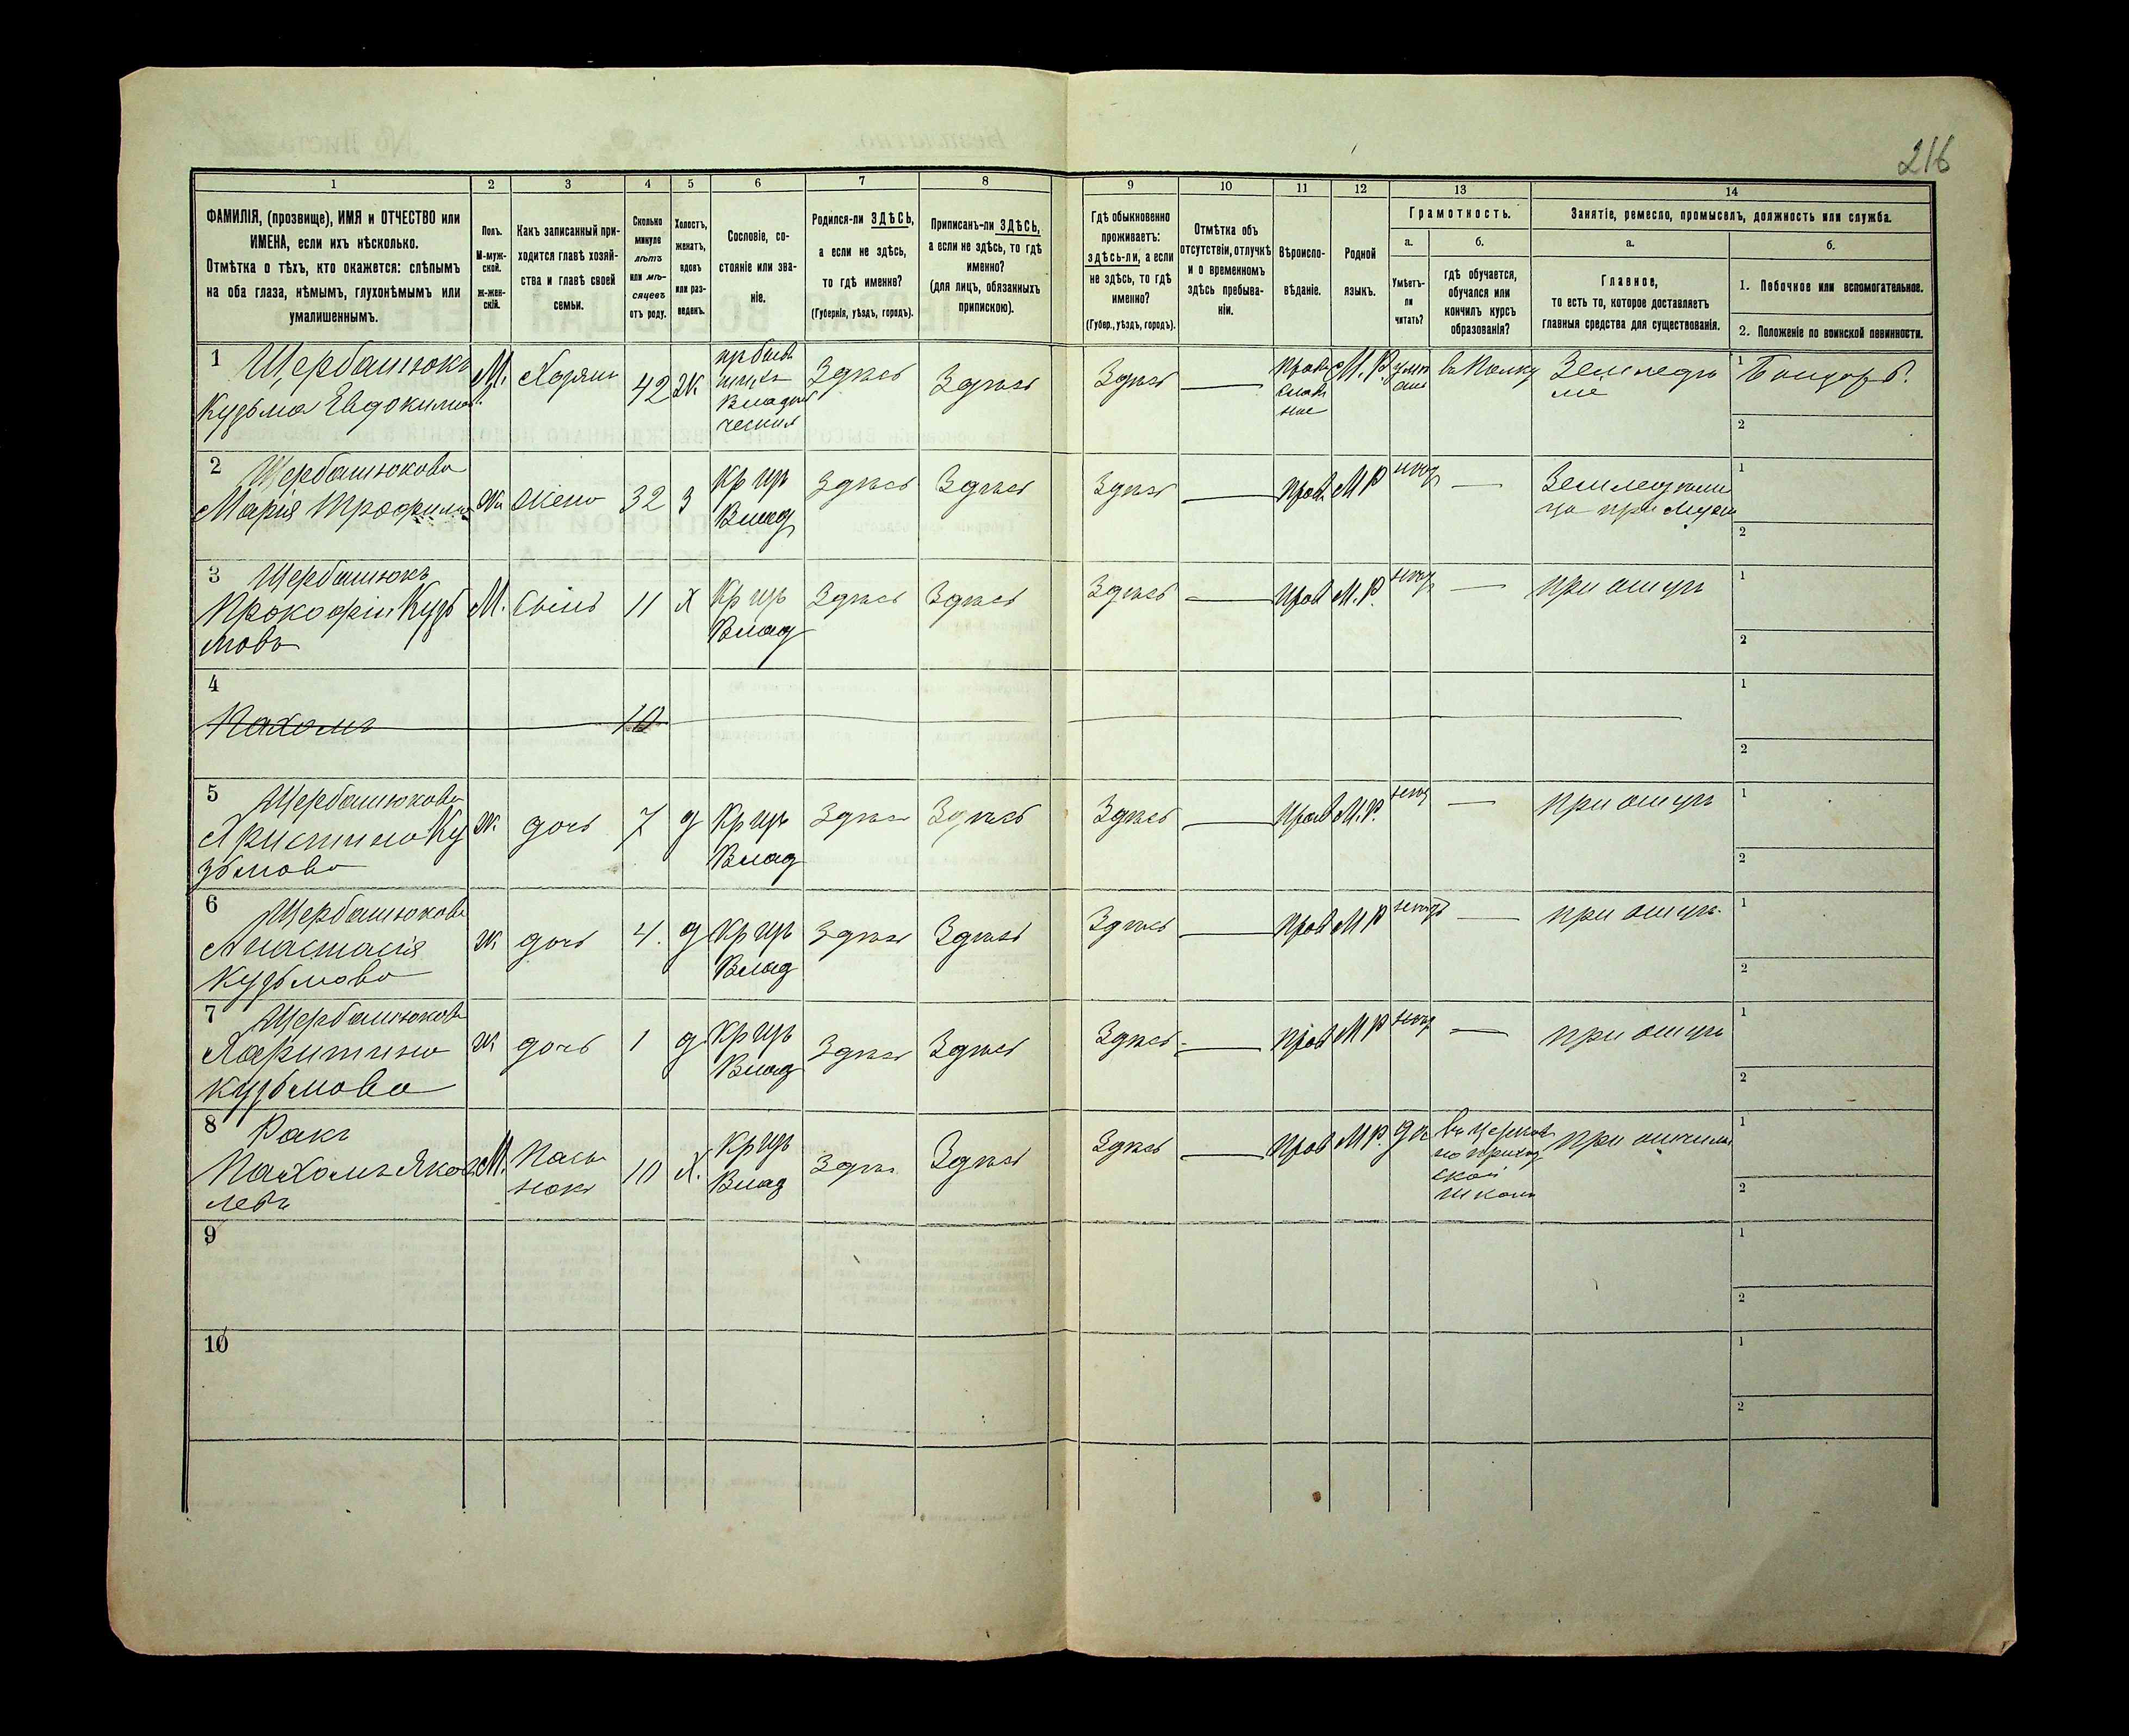 216
1 2 3 4 5 6 7 8 9 10 11 12 13 14
ФАМИЛІЯ, (прозвище), ИМЯ и ОТЧЕСТВО или
ИМЕНА, если ихъ нѣсколько.
Отмѣтка о тѣхъ, кто окажется: слѣпымъ
на оба глаза, нѣмымъ, глухонѣмымъ или
умалишеннымъ.
Полъ.
М-муж-
ской.
Ж-жен-
скій.
Какъ записанный при-
ходится главѣ хозяй-
ства и главѣ своей
семьи.
Сколько
минуло
лѣтъ
или мѣ-
сяцевъ
отъ роду.
Холостъ,
женатъ,
вдовъ
или раз-
веденъ.
Сословіе, со-
стояніе или зва-
ніе.
Родился-ли ЗДѢСЬ,
а если не здѣсь,
то гдѣ именно?
(Губернія, уѣздъ, городъ).
Приписанъ-ли ЗДѢСЬ,
а если не здѣсь, то гдѣ
именно?
(для лицъ, обязанныхъ
припискою).
Гдѣ обыкновенно
проживаетъ:
здѣсь-ли, а если
не здѣсь, то гдѣ
именно?
(Губер., уѣздъ, городъ).
Отмѣтка объ
отсутствіи, отлучкѣ
и о временномъ
здѣсь пребыва-
ніи.
Вѣроиспо-
вѣданіе.
Родной
языкъ.
Грамотность.
а.
Умѣетъ-
ли
читать?
б.
гдѣ обучается,
обучался или
кончилъ курсъ
образованія?
Занятіе, ремесло, промыселъ, должность или служба.
а.
Главное,
то есть то, которое доставляетъ
главныя средства для существованія.
б.
1. Побочное или вспомогательное.
2. Положеніе по воинской повинности.
1 Щербатюкъ
Кузьма Евдокимовъ
М. Хозяин 42 Ж
Владѣль
ческий
Здѣсь Здѣсь Здѣсь —
Право
слав
ное
М. Р.
въ Полку
Земледѣ
ліе
1 Бондарь.
2
2 Щербатюкова
Марія Трофимова
Ж жена 32 З
Кр цъ
Влад
Здѣсь Здѣсь Здѣсь — Прав М Р нѣтъ —
Земледѣли
ца при мужѣ
1
2
3 Щербатюкъ
Прокофій Кузь
мовъ
М. Сынъ 11 Х
Кр цъ
Влад
Здѣсь Здѣсь Здѣсь — Прав М. Р. нѣтъ — при отцѣ
1
2
4
Пахомъ 10
1
2
5 Щербатюкова
Христина Ку
зьмова
Ж. дочь 7 д
Кр цъ
Влад
Здѣсь Здѣсь Здѣсь — Прав М. Р. нѣтъ — при отцѣ
1
2
6 Щербатюкова
Анастасія
Кузьмова
Ж дочь 4. д
Кр цъ
Влад
Здѣсь Здѣсь Здѣсь — Прав М Р нѣтъ — при отцѣ
1
2
7 Щербатюкова
Харитина
Кузьмова
Ж дочь 1 д
Кр цъ
Влад
Здѣсь Здѣсь Здѣсь — Прав М Р нѣтъ — при отцѣ
1
2
8 Ракъ
Пахомъ Яков
левъ
М. Пасы
нокъ
10 Х.
Кр цъ
Влад
Здѣсь Здѣсь Здѣсь — Прав М Р. да
въ Церков
но приход
ской
школѣ
при отчимѣ
1
2
9
1
2
10
1
2